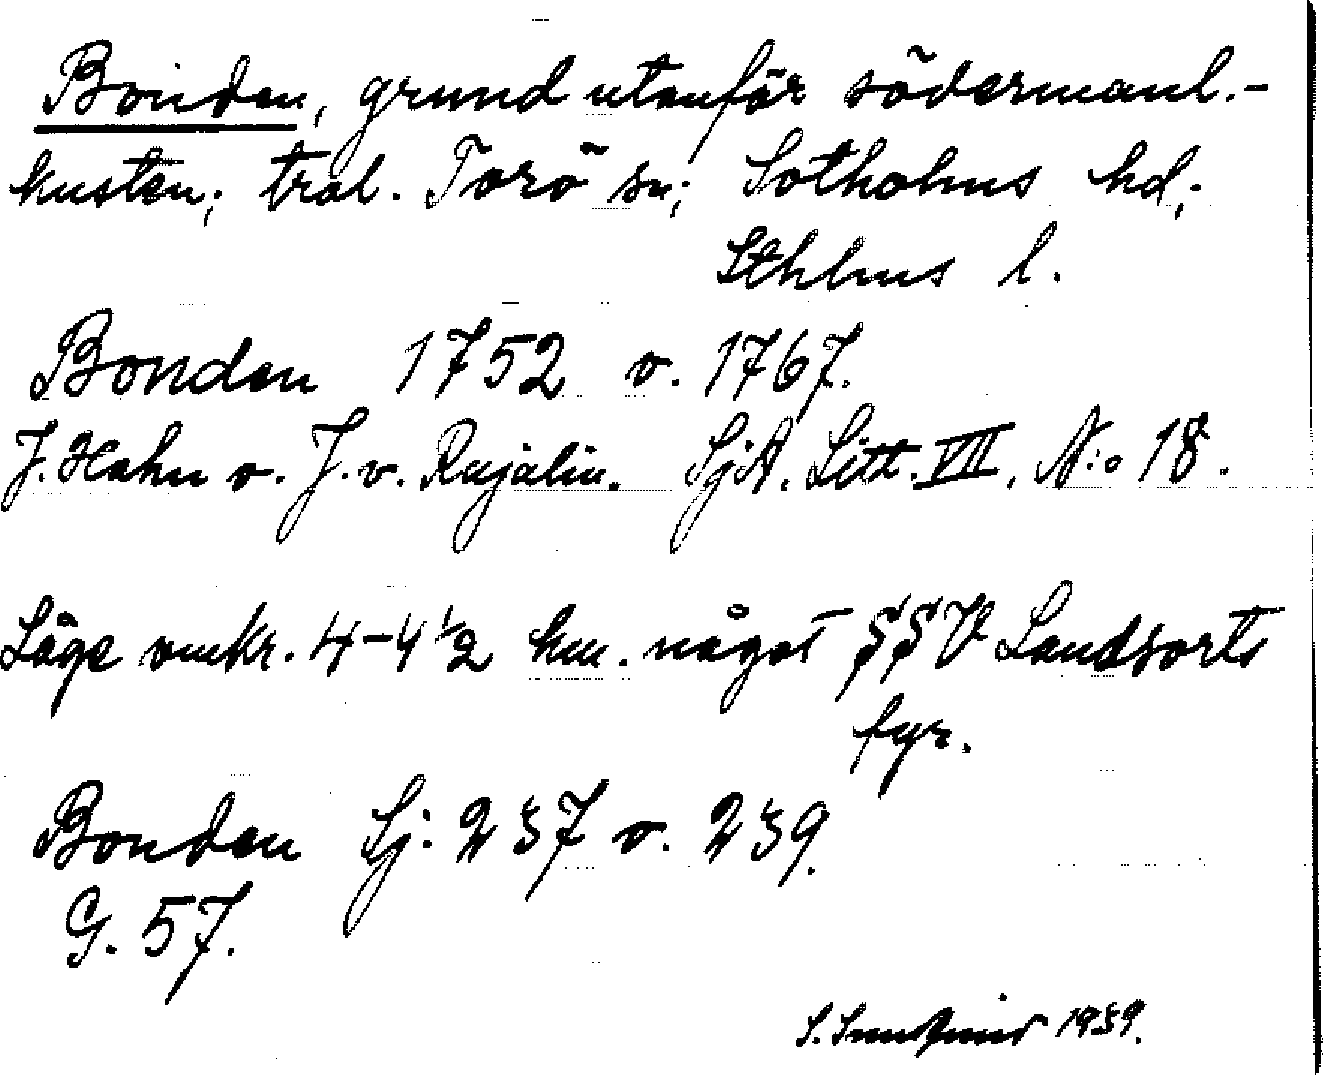 Bonden, grund utanför södermanl.-
kusten; tral. Torö sn; Sotholms hd;
Sthlms l.
Bonden 1752 o. 1767.
J. Hahn o. J. v. Rajalin. SjA. Litt. VII, N:o 18.
Läge omkr. 4-4 1/2 km. något SSV Landsorts
fyr.
Bonden Sj: 237 o. 239.
G. 57.
S. 1939.